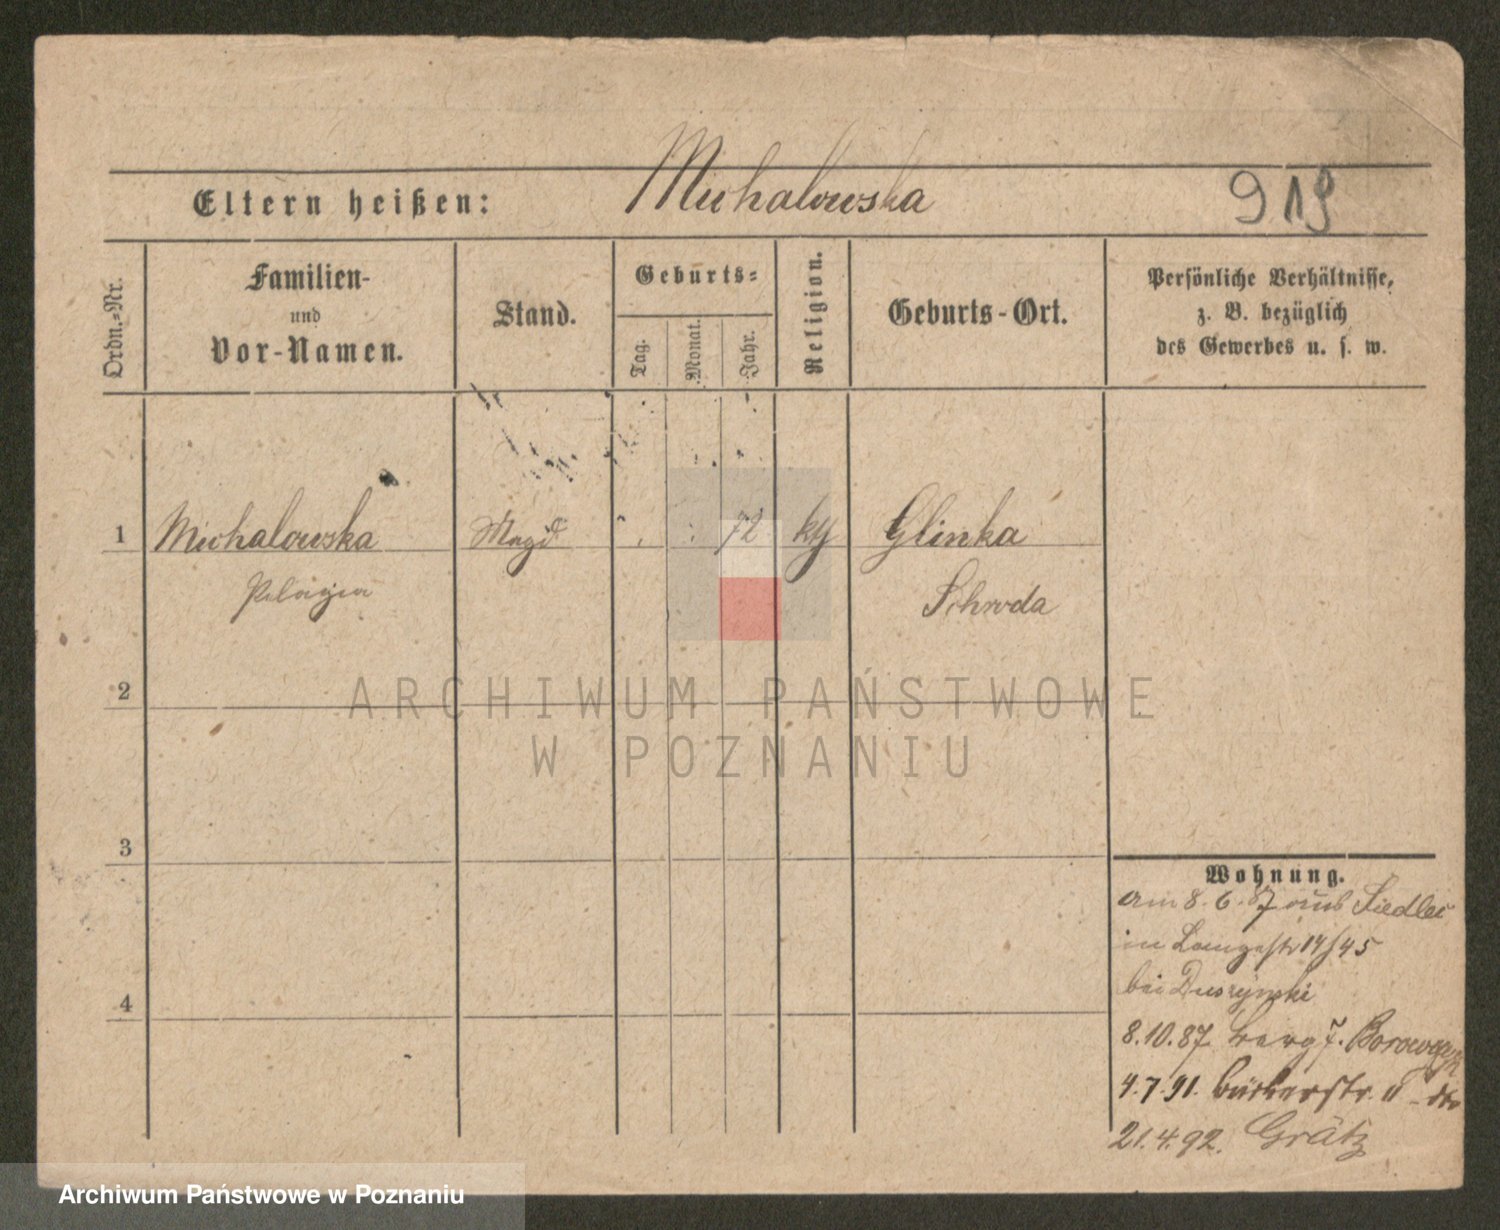 Michalowska
919
Eltern heißen:
Ordn.-Nr.
Familien-
und
Vor-Namen.
Stand.
Geburts-
Tag.
Monat.
Jahr.
Religion.
Geburts-Ort.
Persönliche Verhältnisse,
z. B. bezüglich
des Gewerbes u. s. w.
1 Michalowska Magd 72 kth Glinka
Pelagia Schroda
2
3
4
Wohnung.
am 8.6.87 aus Siedlec
in Langestr 14/45
bei Duszynski
8.10.87 Berg 7. 
4.7.91. Bäckerstr.
21.4.92. Grätz
ARCHIWUM PAŃSTWOWE
W POZNANIU
Archiwum Państwowe w Poznaniu